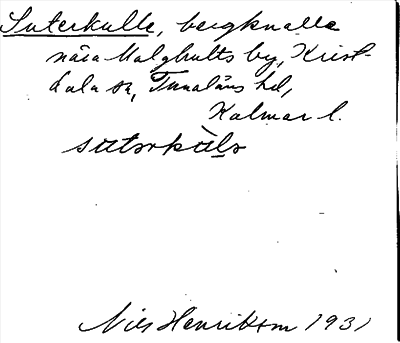 Suterkulle, bergknalle
nära Malghults by, Krist-
dala sn, Tunaläns hd,
Kalmar l.
sutorkùlo
Nils Henrikson 1931